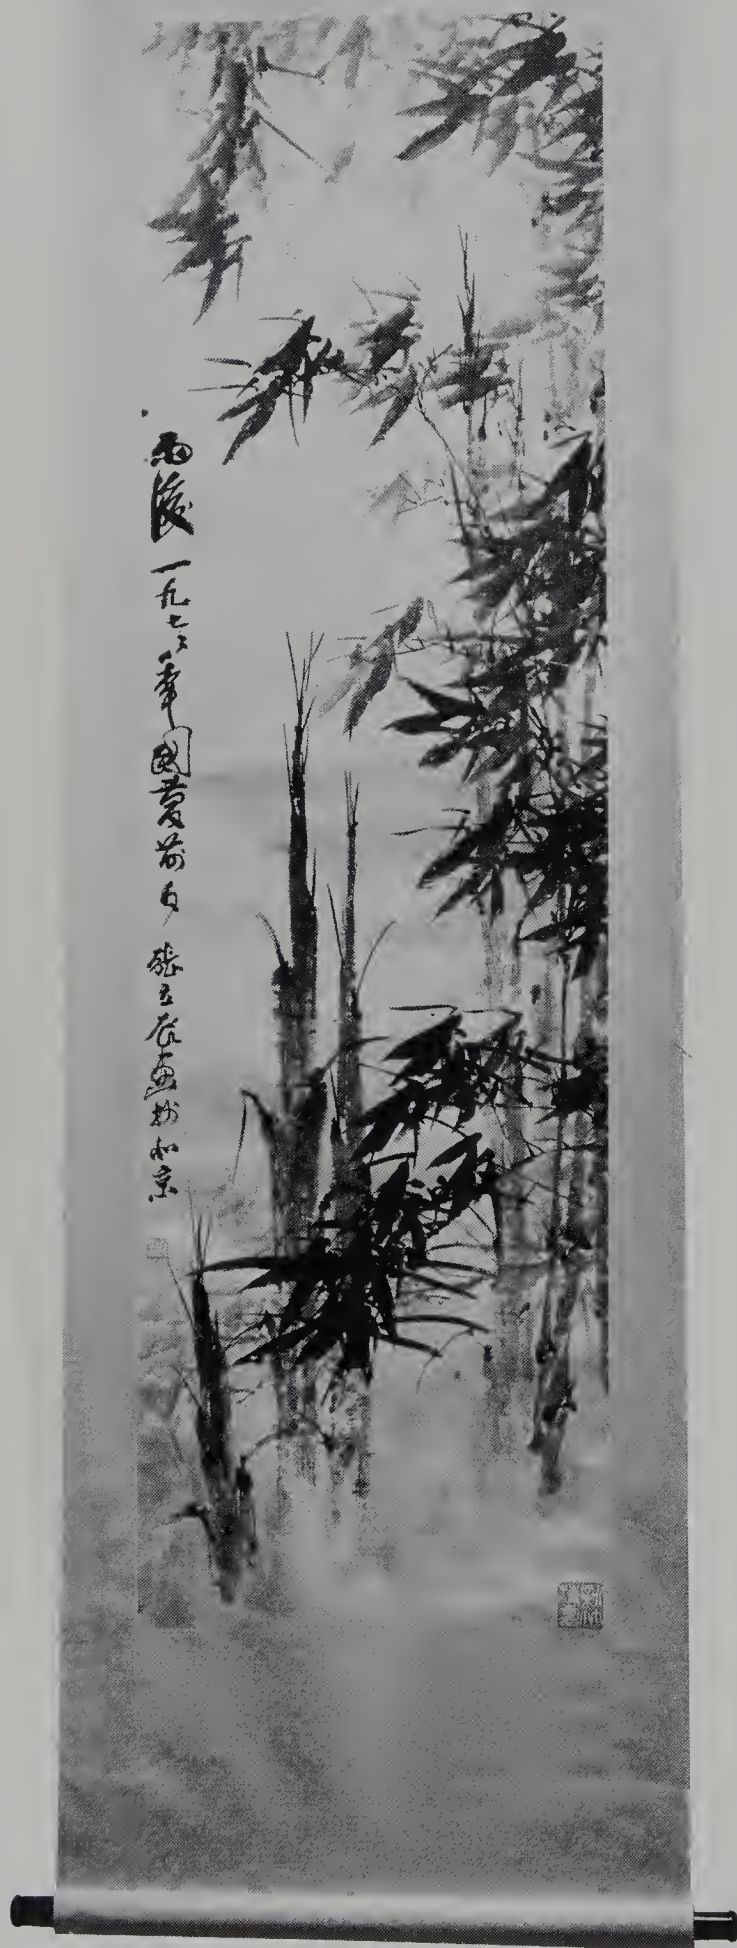 雨後 一九七七年國慶前夕 張立辰畫於北京